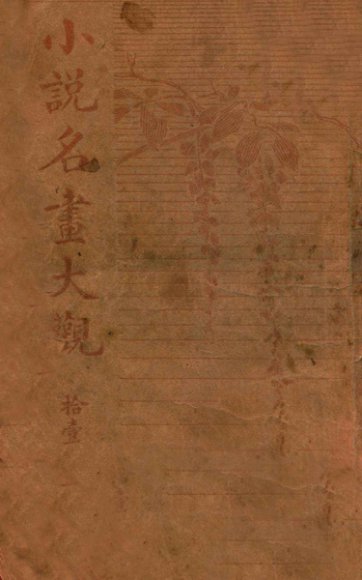 小說名畫大觀
拾壹